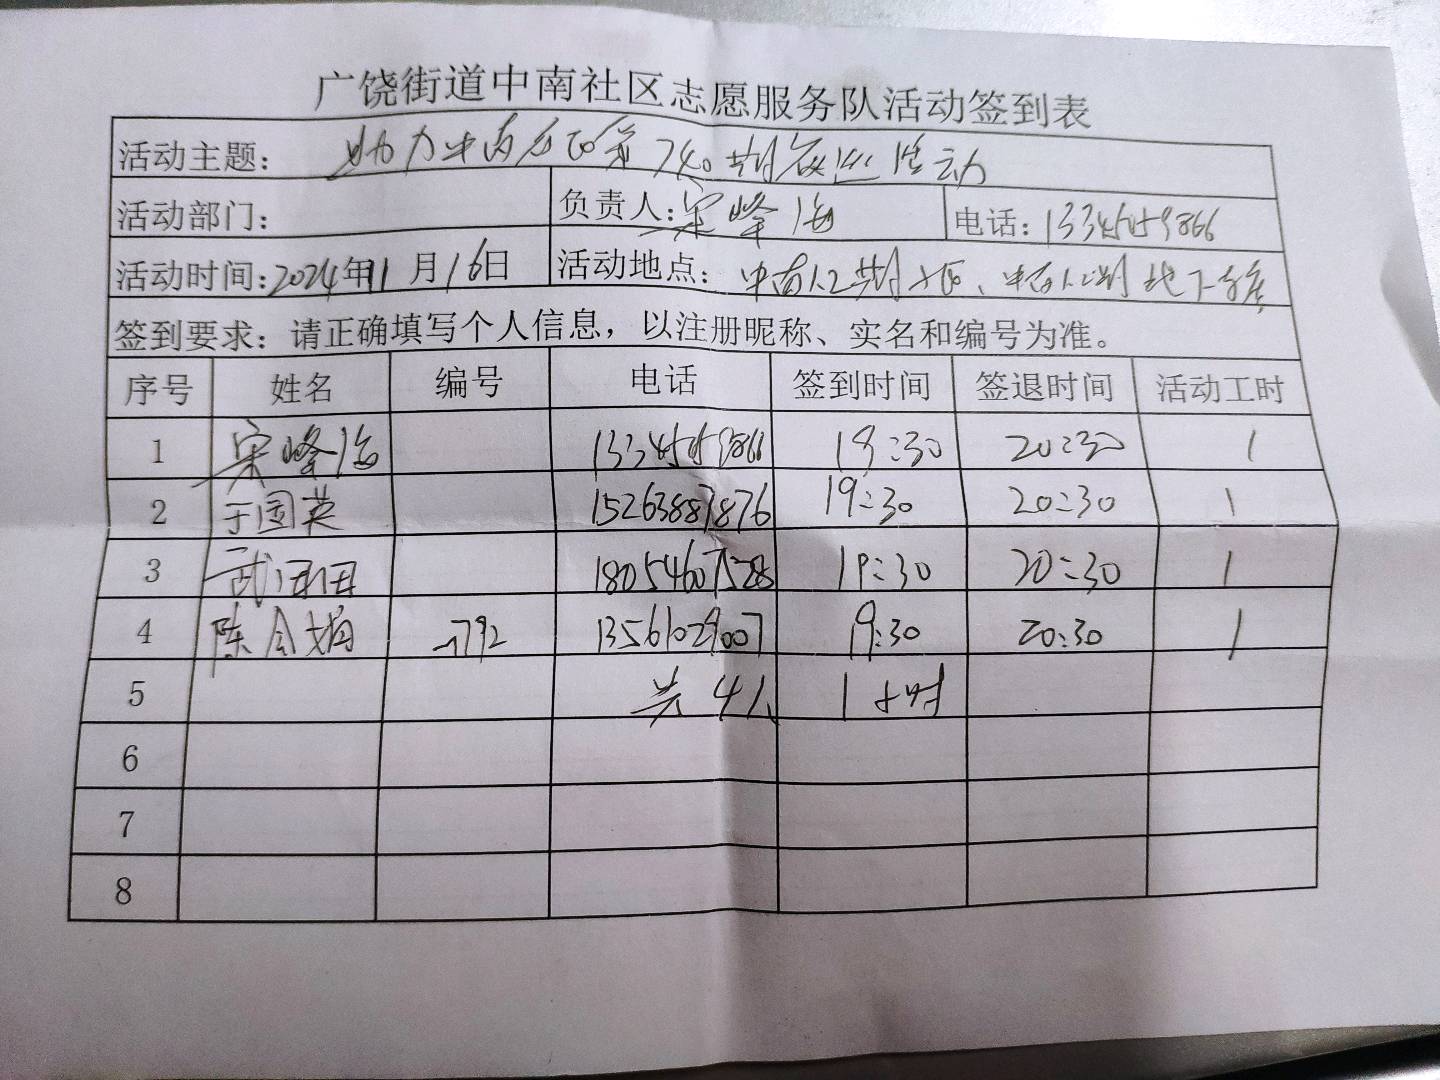 广饶街道中南社区志愿服务队活动签到表
活动主题： 助力中南社区第740期夜巡活动
活动部门： 负责人：宋峰海 电话：13345059866
活动时间：2024年11月16日 活动地点：中南 期 、中南 期地下车库
签到要求：请正确填写个人信息，以注册昵称、实名和编号为准。
序号 姓名 编号 电话 签到时间 签退时间 活动工时
1 宋峰海 13345059866 19:30 20:30 1
2 于国英 15263887876 19:30 20:30 1
3 武 18054607528 19:30 20:30 1
4 陈金娟 792 13561029007 19:30 20:30 1
5 共4人 1小时
6
7
8